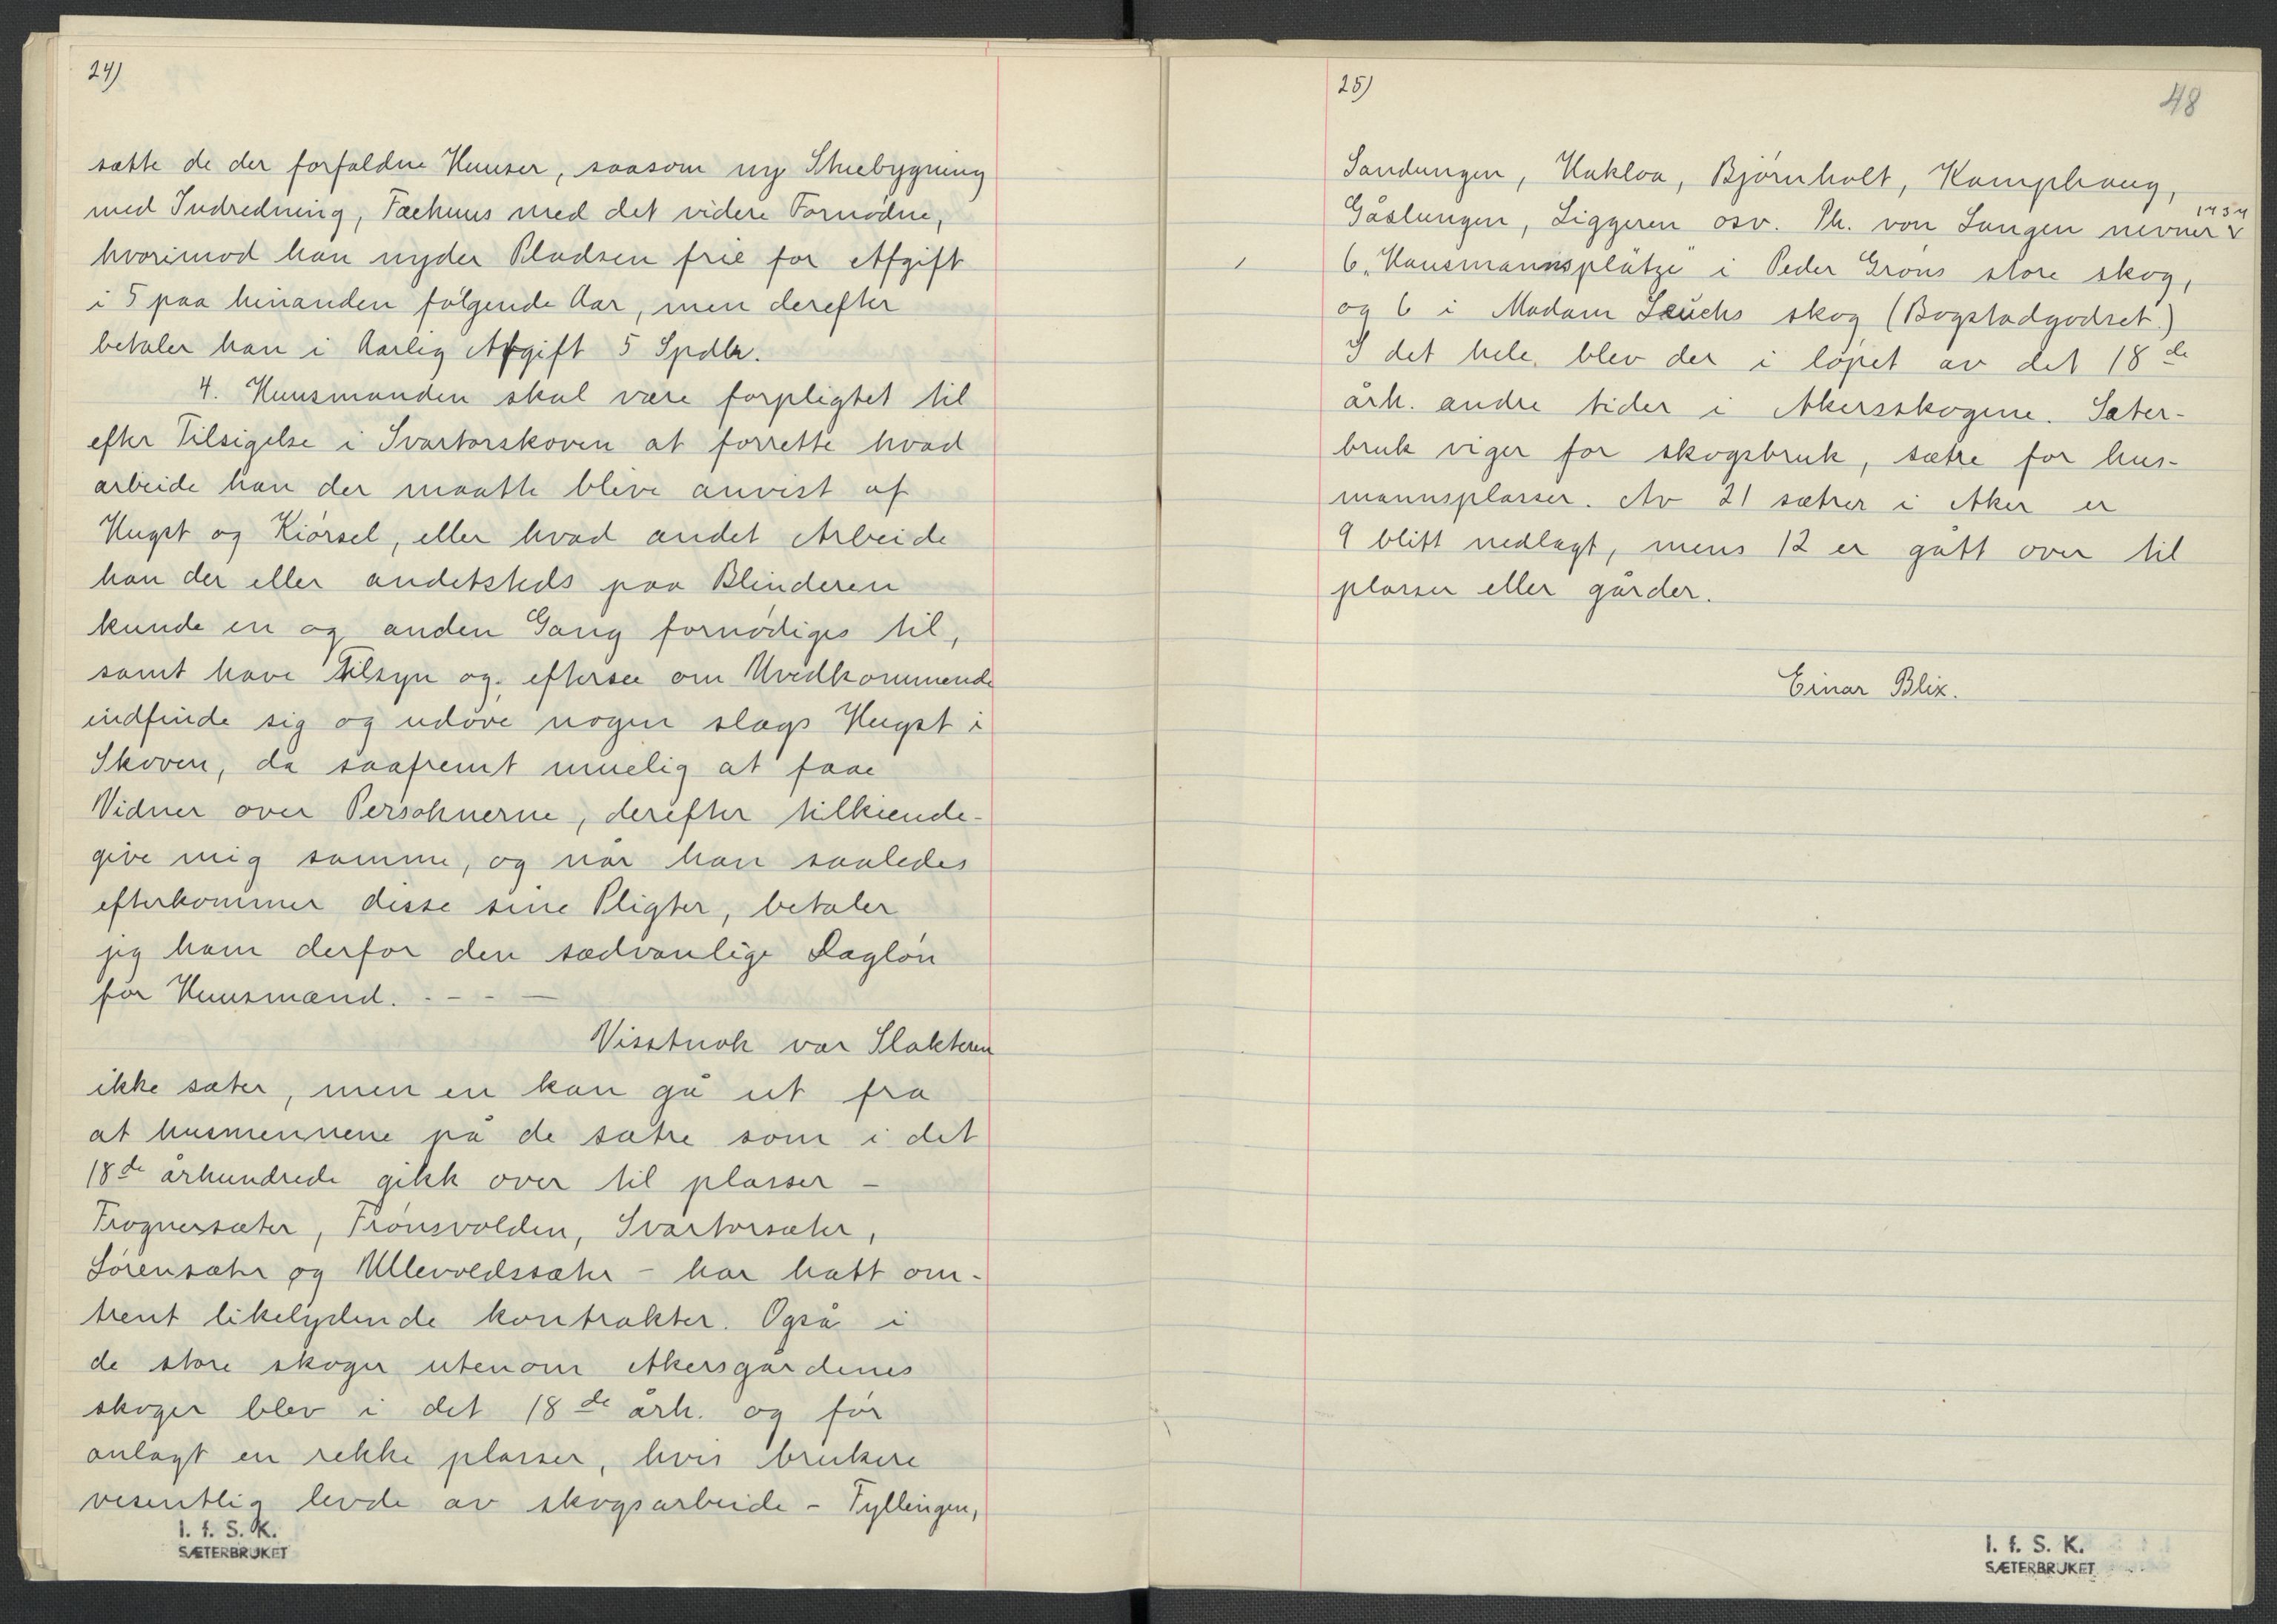 24)
sætte de der forfaldne Huuser, saasom ny Stuebygning
med Indredning, Fæehuus med det videre Fornødne,
hvorimod han nyder Pladsen frie for Afgift
i 5 paa hinanden følgende Aar, men derefter
betaler han i Aarlig Afgift 5 Spdlr.
4. Huusmanden skal være forpligtet til
efter Tilsigelse i Svartorskoven at forrette hvad
arbeide han der maatte blive anvist af
Hugst og Kiørsel, eller hvad andet Arbeide
han der eller andetsteds paa Blinderen
kunde en og anden Gang fornødiges til,
samt have Tilsyn og eftersee om Uvedkommende
indfinde sig og udøve nogen slags Hugst i
Skoven, da saafremt muelig at faae
Vidner over Persohnerne, derefter tilkiende-
give mig samme, og når han saaledes
efterkommer disse sine Pligter, betaler
jeg ham derfor den sædvanlige Dagløn
for Huusmænd. - - - —
Visstnok var Slakteren
ikke sæter, men en kan gå ut fra
at husmennene på de sætre som i det
18de århundrede gikk over til plasser –
Frognersæter, Frønsvolden, Svartorsæter,
Sørensæter og Ullevoldssæter – har hatt om-
trent likelydende kontrakter. Også i
de store skoger utenom Akersgårdenes
skoger blev i det 18de årh. og før
anlagt en rekke plasser, hvis brukere
vesentlig levde av skogsarbeide – Fyllingen,
I. f. S. K.
SÆTERBRUKET
25)
48
Sandungen, Hakloa, Bjørnholt, Kamphaug,
Gåslungen, Liggeren osv. Ph. von Langen nevner 1737
6 „Hausmannsplätze" i Peder Grøns store skog,
og 6 i Madam Leuchs skog (Bogstadgodset.)
I det hele blev der i løpet av det 18de
årh. andre tider i Akersskogene. Sæter-
bruk viger for skogsbruk, sætre for hus-
mannsplasser. Av 21 sætrer i Aker er
9 blitt nedlagt, mens 12 er gått over til
plasser eller gårder.
Einar Blix.
I. f. S. K.
SÆTERBRUKET